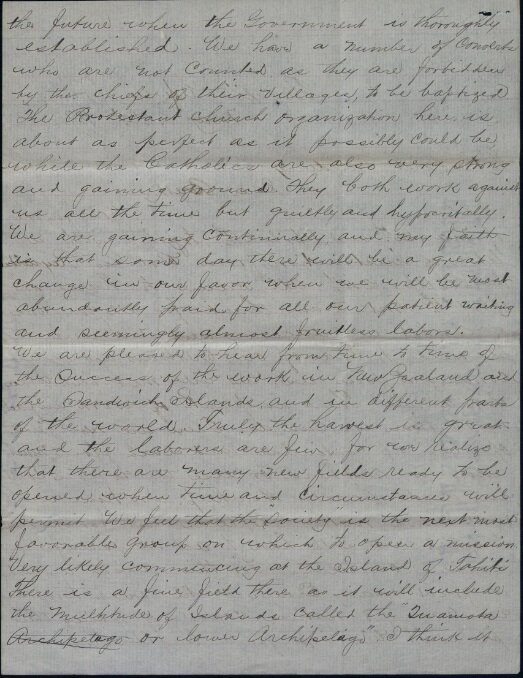 the future when the Government is thoroughly
established. We have a number of Converts
who are not Counted as they are forbidden
by the chiefs of their villages, to be baptized
The Protestant Church organization here is
about as perfect as it possibly could be
while the Catholics are also very strong
and gaining ground. They both work against
us all the time but quietly and hypocritally.
We are gaining Continually and my faith
is that some day there will be a great
change in our favor, when we will be most
abundantly paid for all our patient waiting
and seemingly almost fruitless labors.
We are pleased to hear from time to time of
the success of the work in New Zealand and
the Sandwich Islands, and in different parts
of the world. Truly the harvest is great
and the laborers are few, for we realize
that there are many new fields ready to be
opened when time and Circumstances will
permit. We feel that the "Society" is the next most
favorable group on which to open a mission
Very likely commencing at the Island of Tahiti
There is a fine field there as it will include
the Multitude of Islands called the "Tuamota
Archipelago or lower Archipelago" I think it